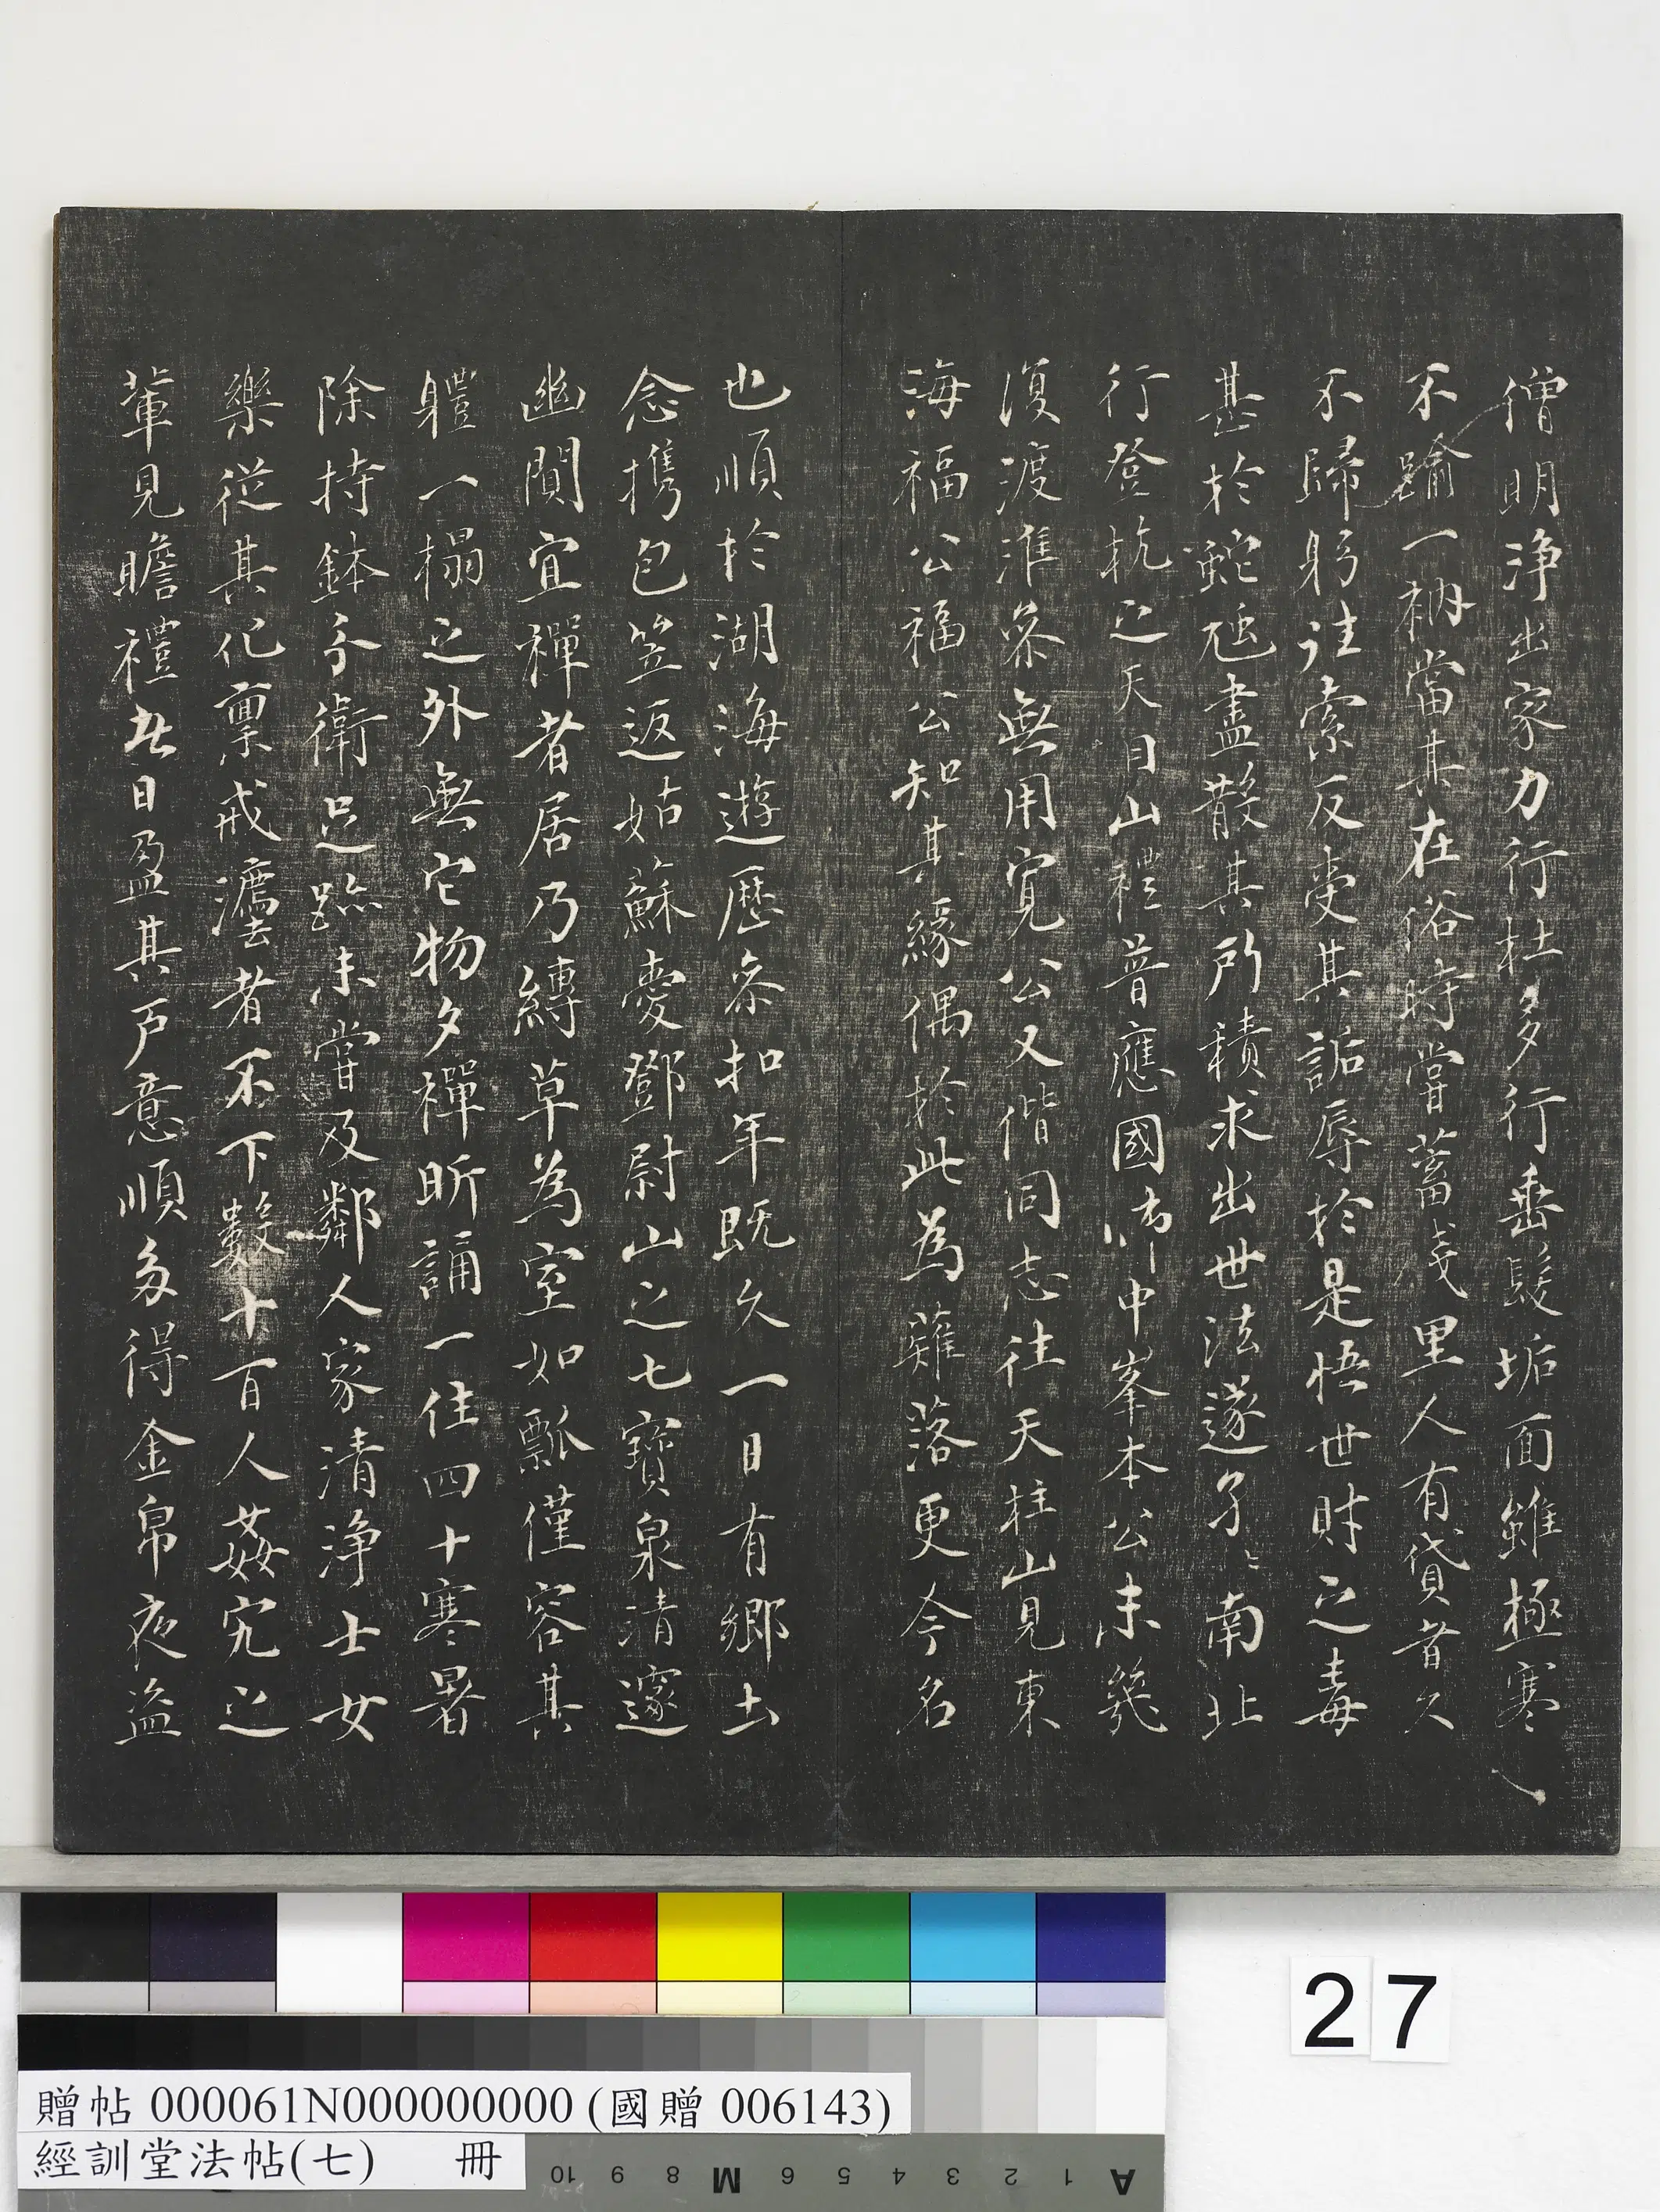 僧明淨出家力行杜多行垂髮垢面雖極寒
不踰一衲當其在俗時嘗蓄戔里人有貸者久
不歸躬往索反受其詬辱於是悟世財之毒
甚於蛇虺盡散其所積求出世法遂孑〻南北
行登杭之天目山禮普應國師中峯本公未幾
復渡淮參無用寬公又偕同志往天柱山見東
海福公福公知其緣偶於此為薙落更今名
也順於湖海遊歷參扣年既久一日有鄉土
念携包笠返姑蘇愛鄧尉山之七寶泉清邃
幽閴宜禪者居乃縳草為室如瓢僅容其
軆一榻之外無它物夕禪昕誦一住四十寒暑
除持鉢分衛足跡未嘗及鄰人家清淨士女
樂從其化稟戒灋者不下數十百人姦宄之
輩見瞻禮者日盈其戶意順多得金帛夜盜
27
贈帖 000061N000000000 (國贈 006143)
經訓堂法帖(七) 冊
10 9 8 M 6 5 4 3 2 1 A